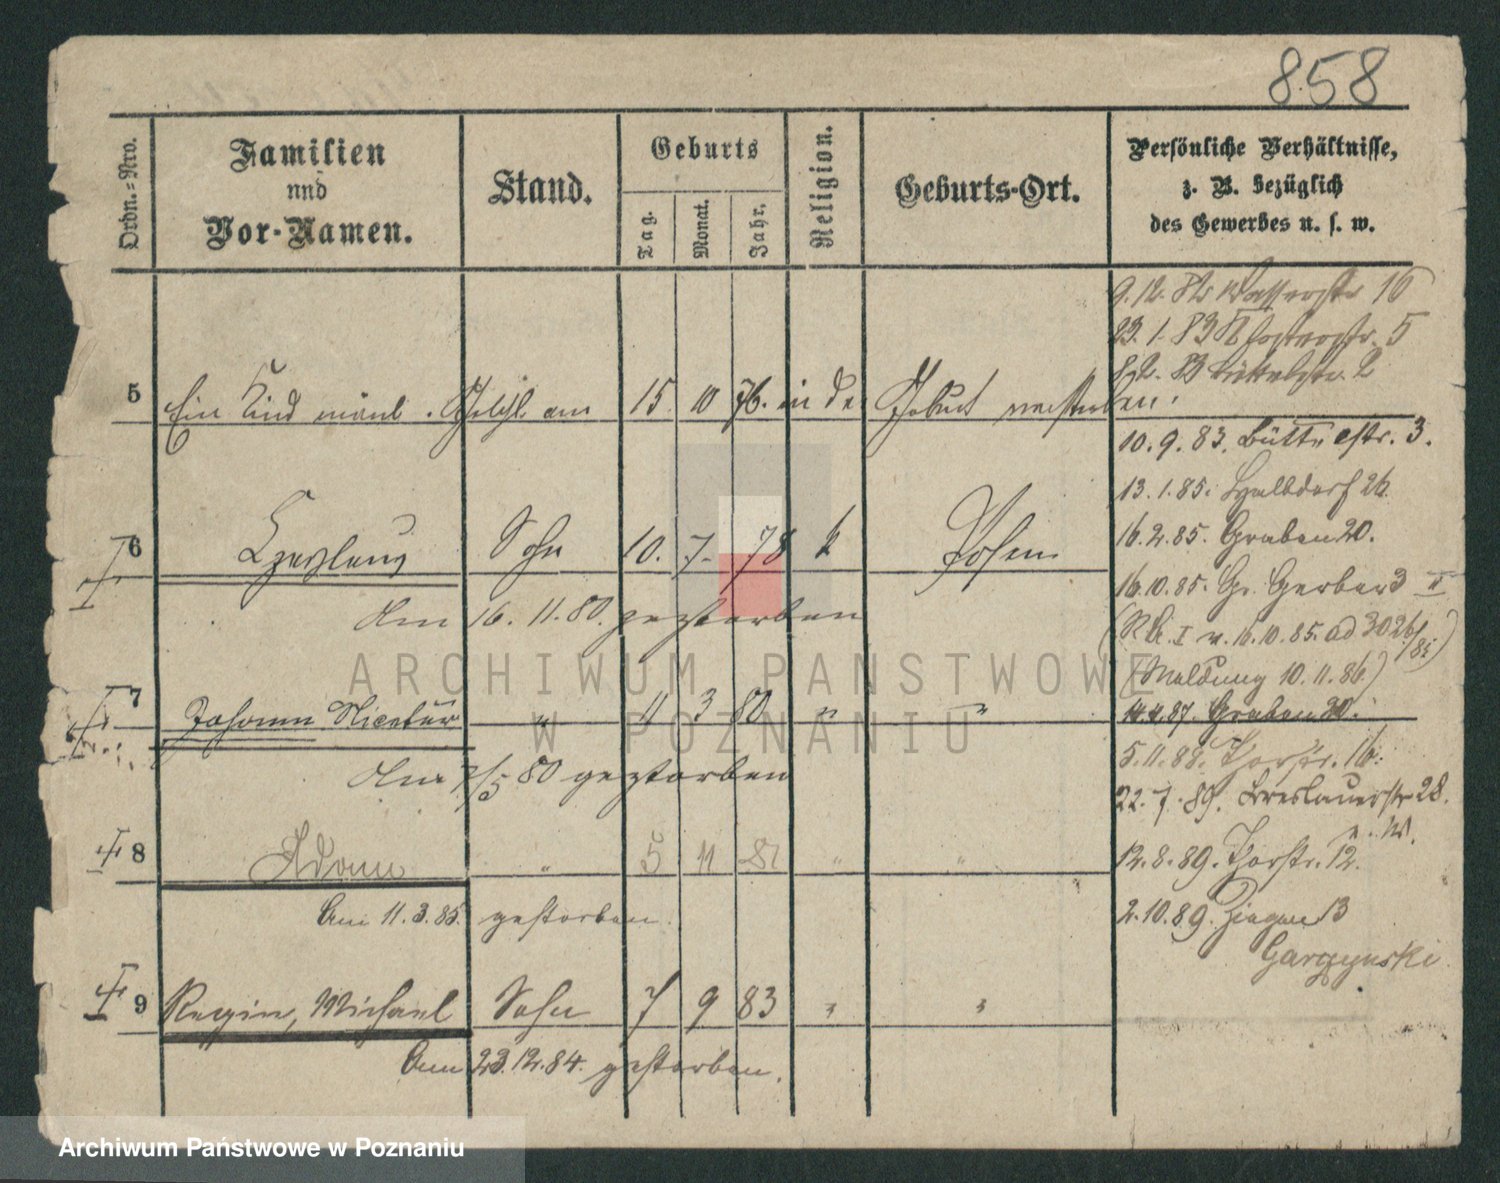 858
Ordn.=Nro.
Familien
und
Vor-Namen.
Stand.
Geburts
Tag.
Monat.
Jahr.
Religion.
Geburts-Ort.
Persönliche Verhältnisse,
z. B. bezüglich
des Gewerbes u. s. w.
9.12. 82 Wasserstr 16
23.1.83 Klosterstr. 5
83 Büttelstr. 2
5 Ein Kind männl. Geschl. am 15. 10 76. in der Geburt verstorben.
10.9.83. Büttelstr. 3.
13.1.85. Halbdorf 26.
6 Czeslaus Sohn 10. 7. 78 k Posen
16.2.85. Graben 20.
16.10.85. Gr. Gerber 3 II
Am 16. 11. 80. gestorben
(R.B. I v. 16.10.85. ad 3026/85)
(Meldung 10.11.86.)
7 Johann Nicolaus " 4 3 80 " "
14.4.87. Graben 20.
Am 7/5 80 gestorben
5.11.88. Thorstr. 16.
22.7.89. Breslauerstr 28.
8 Adam " 5 11 81 " "
12.8.89. Thorstr. 12.
Am 11.3.85. gestorben.
2.10.89. Ziegen 13
Garczynski
9 Regin, Michael Sohn 7 9 83 " "
Am 23.12.84. gestorben.
ARCHIWUM PAŃSTWOWE
W POZNANIU
Archiwum Państwowe w Poznaniu